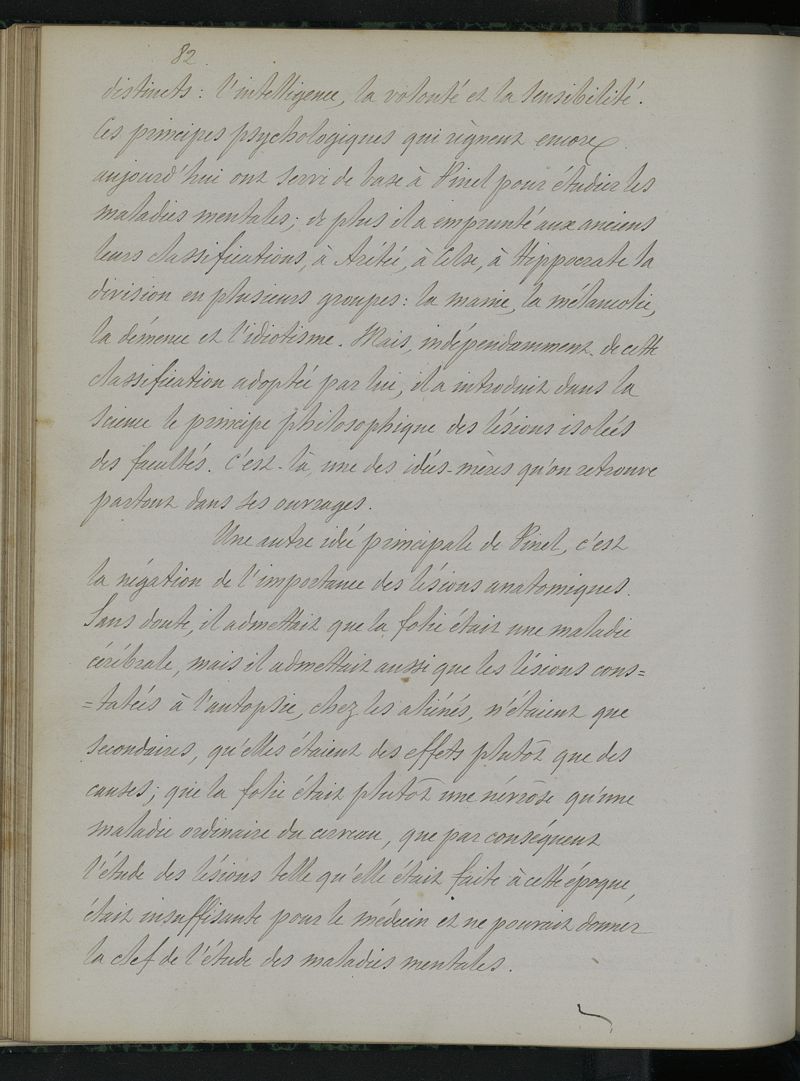 82
distincts : l'intelligence, la volonté et la sensibilité.
Ces principes psychologiques qui règnent encore
aujourd'hui ont servi de base à Pinel pour étudier les
maladies mentales; de plus il a emprunté aux anciens
leurs classifications, à Arétée, à Celse, à Hippocrate la
division en plusieurs groupes : la manie, la mélancolie,
la démence et l'idiotisme. Mais, indépendamment de cette
classification adoptée par lui, il a introduit dans la
science le principe philosophique des lésions isolées
des facultés. C'est-là, une des idées-mères qu'on retrouve
partout dans ses ouvrages.
Une autre idée principale de Pinel, c'est
la négation de l'importance des lésions anatomiques.
Sans doute, il admettait que la folie était une maladie
cérébrale, mais il admettait aussi que les lésions cons=
=tatées à l'autopsie, chez les aliénés, n'étaient que
secondaires, qu'elles étaient des effets plutôt que des
causes; que la folie était plutôt une névrose qu'une
maladie ordinaire du cerveau, que par conséquent
l'étude des lésions telle qu'elle était faite à cette époque,
était insuffisante pour le médecin et ne pouvait donner
la clef de l'étude des maladies mentales.